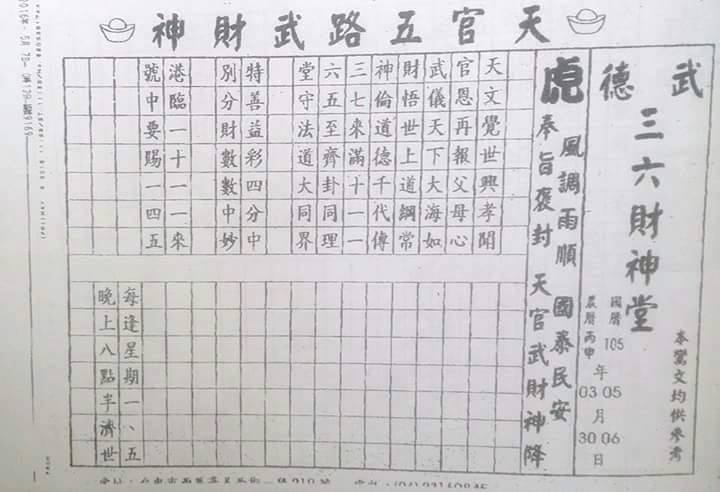 天官五路武財神
武德
三六財神堂
本鸞文均供參考
國曆105年05月06日
農曆丙申 03 30
風調雨順 國泰民安
虎 奉旨褒封 天官武財神降
天文覺世興孝聞
官恩再報父母心
武儀天下大海如
財悟世上道綱常
神倫道德千代傳
三七來滿十一一
六五至齊卦同理
堂守法道大同界
特善益彩四分中
別分財數數中妙
港臨一十一一來
號中要賜一四五
每逢星期一、五
晚上八點半濟世